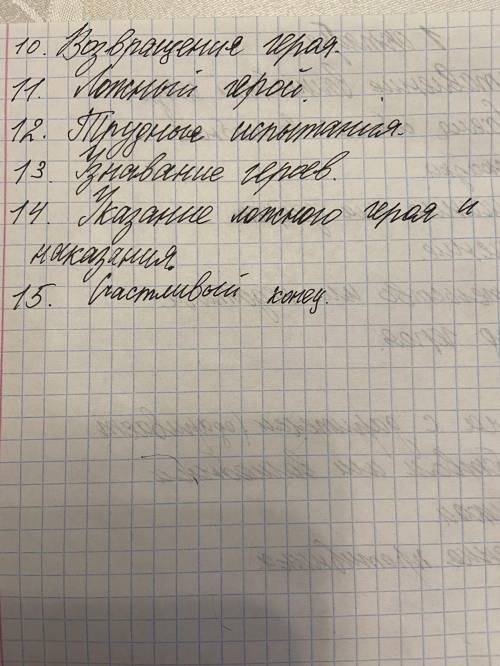 10. Возвращение героя.
11. Ложный герой.
12. Трудные испытания.
13. Узнавание героев.
14. Указание ложного героя и
наказания.
15. Счастливый конец.